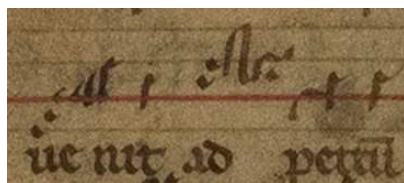 ue nit ad petrū